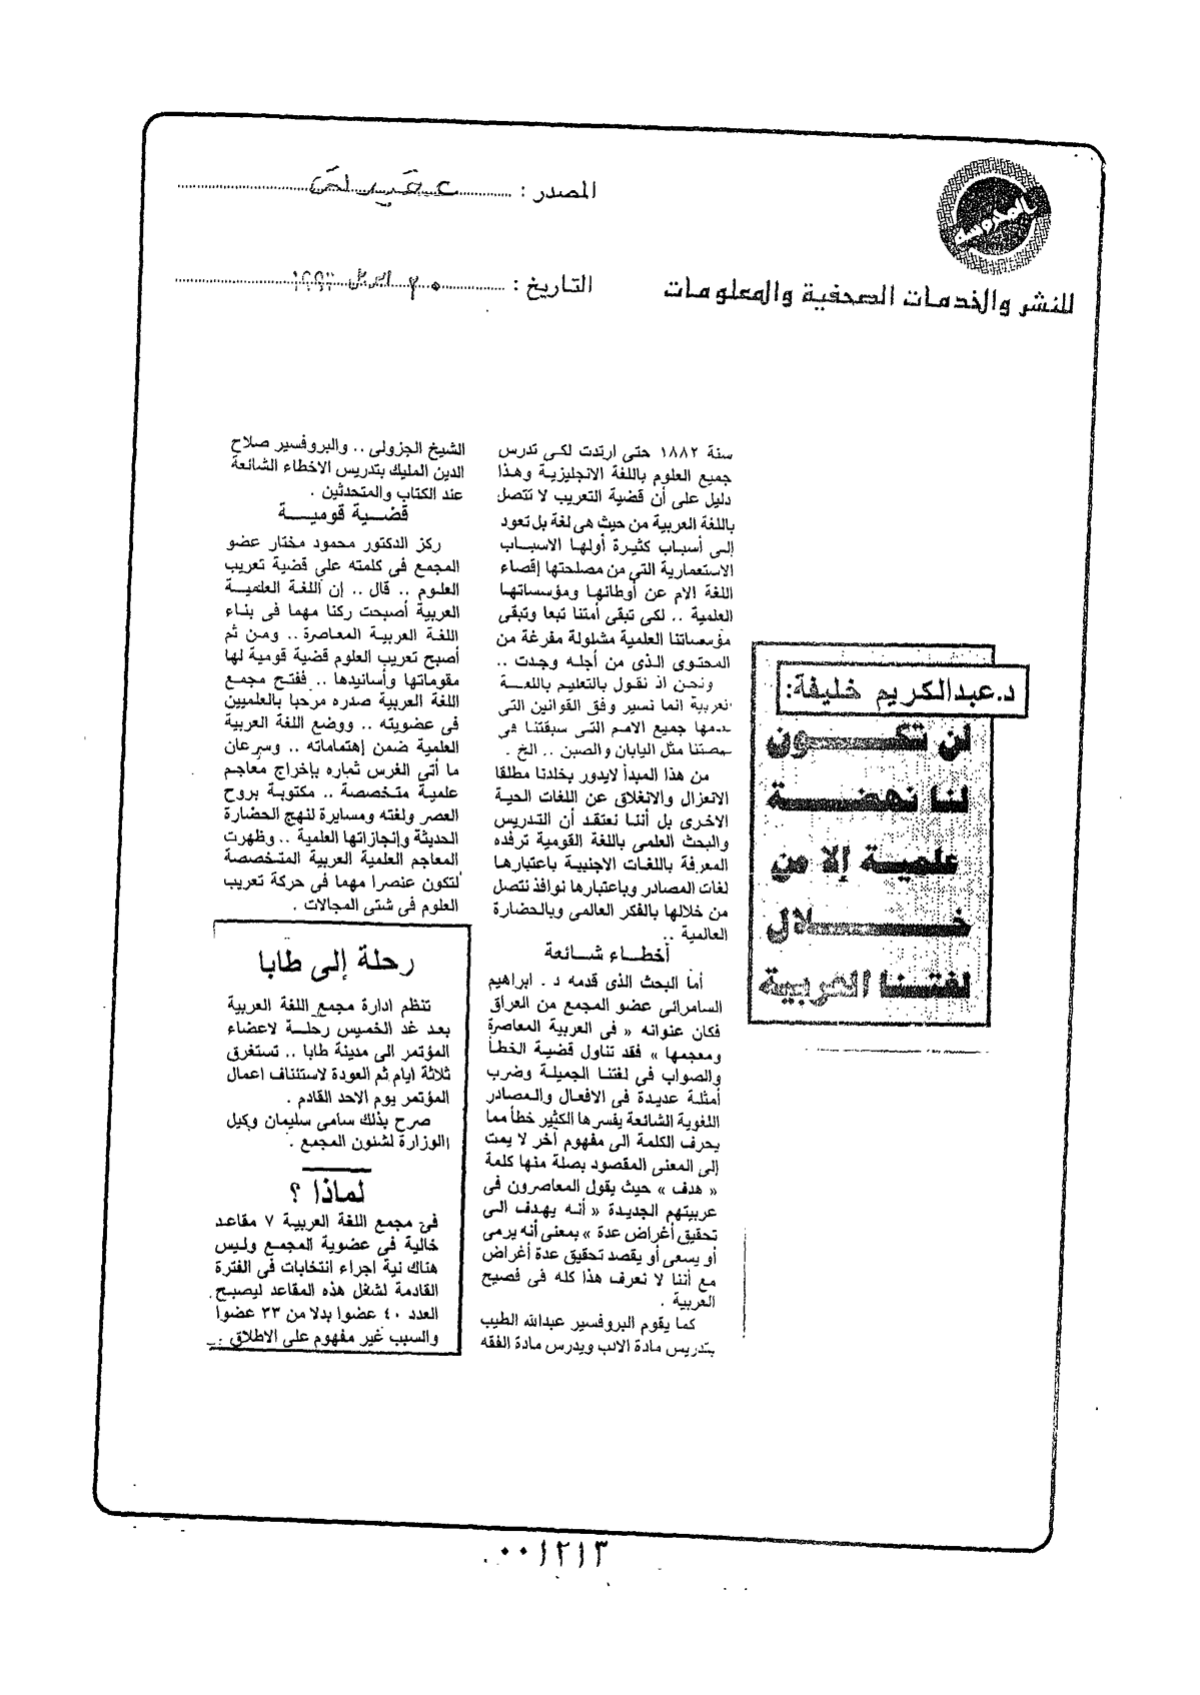 المصدر :
التاريخ :
للنشر والخدمات الصحفية والمعلومات
د.عبدالكريم خليفة:
لن تكون
لنا نهضة
علمية إلا من
خلال
لغتنا العربية
سنة ١٨٨٢ حتى ارتدت لكى تدرس
جميع العلوم باللغة الانجليزية وهذا
دليل على أن قضية التعريب لا تتصل
باللغة العربية من حيث هى لغة بل تعود
إلى أسباب كثيرة أولها الاسباب
الاستعمارية التى من مصلحتها إقصاء
اللغة الام عن أوطانها ومؤسساتها
العلمية .. لكى تبقى أمتنا تبعا وتبقى
مؤسساتنا العلمية مشلولة مفرغة من
المحتوى الذى من أجله وجدت ..
ونحن اذ نقول بالتعليم باللغة
العربية انما نسير وفق القوانين التى
جميع الامم التى سبقتنا فى
مثل اليابان والصين .. الخ .
من هذا المبدأ لايدور بخلدنا مطلقا
الانعزال والانغلاق عن اللغات الحية
الاخرى بل أننا نعتقد أن التدريس
والبحث العلمى باللغة القومية ترفده
المعرفة باللغات الاجنبية باعتبارها
لغات المصادر وباعتبارها نوافذ نتصل
من خلالها بالفكر العالمى وبالحضارة
العالمية ..
أخطاء شائعة
أما البحث الذى قدمه د . ابراهيم
السامرائى عضو المجمع من العراق
فكان عنوانه « فى العربية المعاصرة
ومعجمها » فقد تناول قضية الخطأ
والصواب فى لغتنا الجميلة وضرب
أمثلة عديدة فى الافعال والمصادر
اللغوية الشائعة يفسرها الكثير خطأ مما
يحرف الكلمة الى مفهوم آخر لا يمت
إلى المعنى المقصود بصلة منها كلمة
« هدف » حيث يقول المعاصرون فى
عربيتهم الجديدة « أنه يهدف الى
تحقيق أغراض عدة » بمعنى أنه يرمى
أو يسعى أو يقصد تحقيق عدة أغراض
مع أننا لا نعرف هذا كله فى فصيح
العربية .
كما يقوم البروفسير عبدالله الطيب
بتدريس مادة الادب ويدرس مادة الفقه
الشيخ الجزولى .. والبروفسير صلاح
الدين المليك بتدريس الاخطاء الشائعة
عند الكتاب والمتحدثين .
قضية قومية
ركز الدكتور محمود مختار عضو
المجمع فى كلمته على قضية تعريب
العلوم .. قال .. إن اللغة العلمية
العربية أصبحت ركنا مهما فى بناء
اللغة العربية المعاصرة .. ومن ثم
أصبح تعريب العلوم قضية قومية لها
مقوماتها وأسانيدها .. ففتح مجمع
اللغة العربية صدره مرحبا بالعلميين
فى عضويته .. ووضع اللغة العربية
العلمية ضمن إهتماماته .. وسرعان
ما أتى الغرس ثماره بإخراج معاجم
علمية متخصصة .. مكتوبة بروح
العصر ولغته ومسايرة لنهج الحضارة
الحديثة وإنجازاتها العلمية .. وظهرت
المعاجم العلمية العربية المتخصصة
لتكون عنصرا مهما فى حركة تعريب
العلوم فى شتى المجالات .
رحلة إلى طابا
تنظم ادارة مجمع اللغة العربية
بعد غد الخميس رحلة لاعضاء
المؤتمر الى مدينة طابا .. تستغرق
ثلاثة ايام ثم العودة لاستئناف اعمال
المؤتمر يوم الاحد القادم .
صرح بذلك سامى سليمان وكيل
الوزارة لشئون المجمع .
لماذا ؟
فى مجمع اللغة العربية ٧ مقاعد
خالية فى عضوية المجمع وليس
هناك نية اجراء انتخابات فى الفترة
القادمة لشغل هذه المقاعد ليصبح
العدد ٤٠ عضوا بدلا من ٣٣ عضوا
والسبب غير مفهوم على الاطلاق ..
٠٠١٢١٣